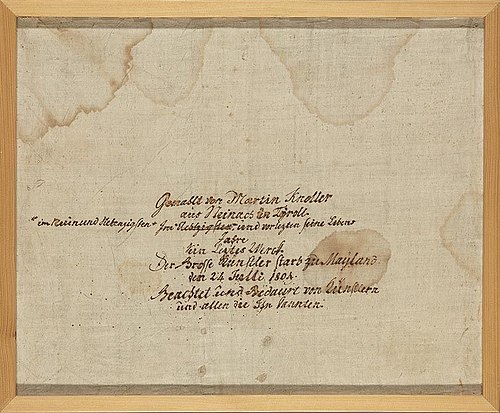 Gemahlt von Martin Knoller
aus Steinach in Tyroll
im Neun und Siebenzigsten Im Siebzigsten und vorlezten seine Lebens
Jahre
Ein Leztes Werck
Der Grosse Künstler starb zu Mayland
den 24 Julli 1804.
Beachtet und Bedauert von Künstlern
und allen die Ihn kannten